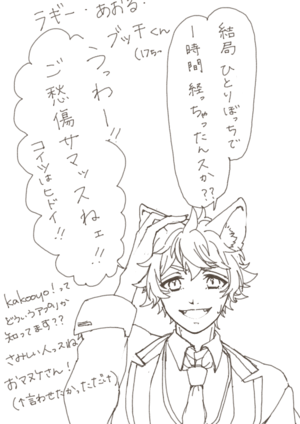 ラギー・あおる・
ブッチくん
(17さい
結局ひとりぼっちで
一時間経っちゃったんスか??
うっわー!!
ご愁傷サマッスねェ!!
コイツはヒドイ!!
kakooyo!って
どういうアプリか
知ってます??
さみしい人っスね
おマヌケさん!
(↑言わせたかっただけ)